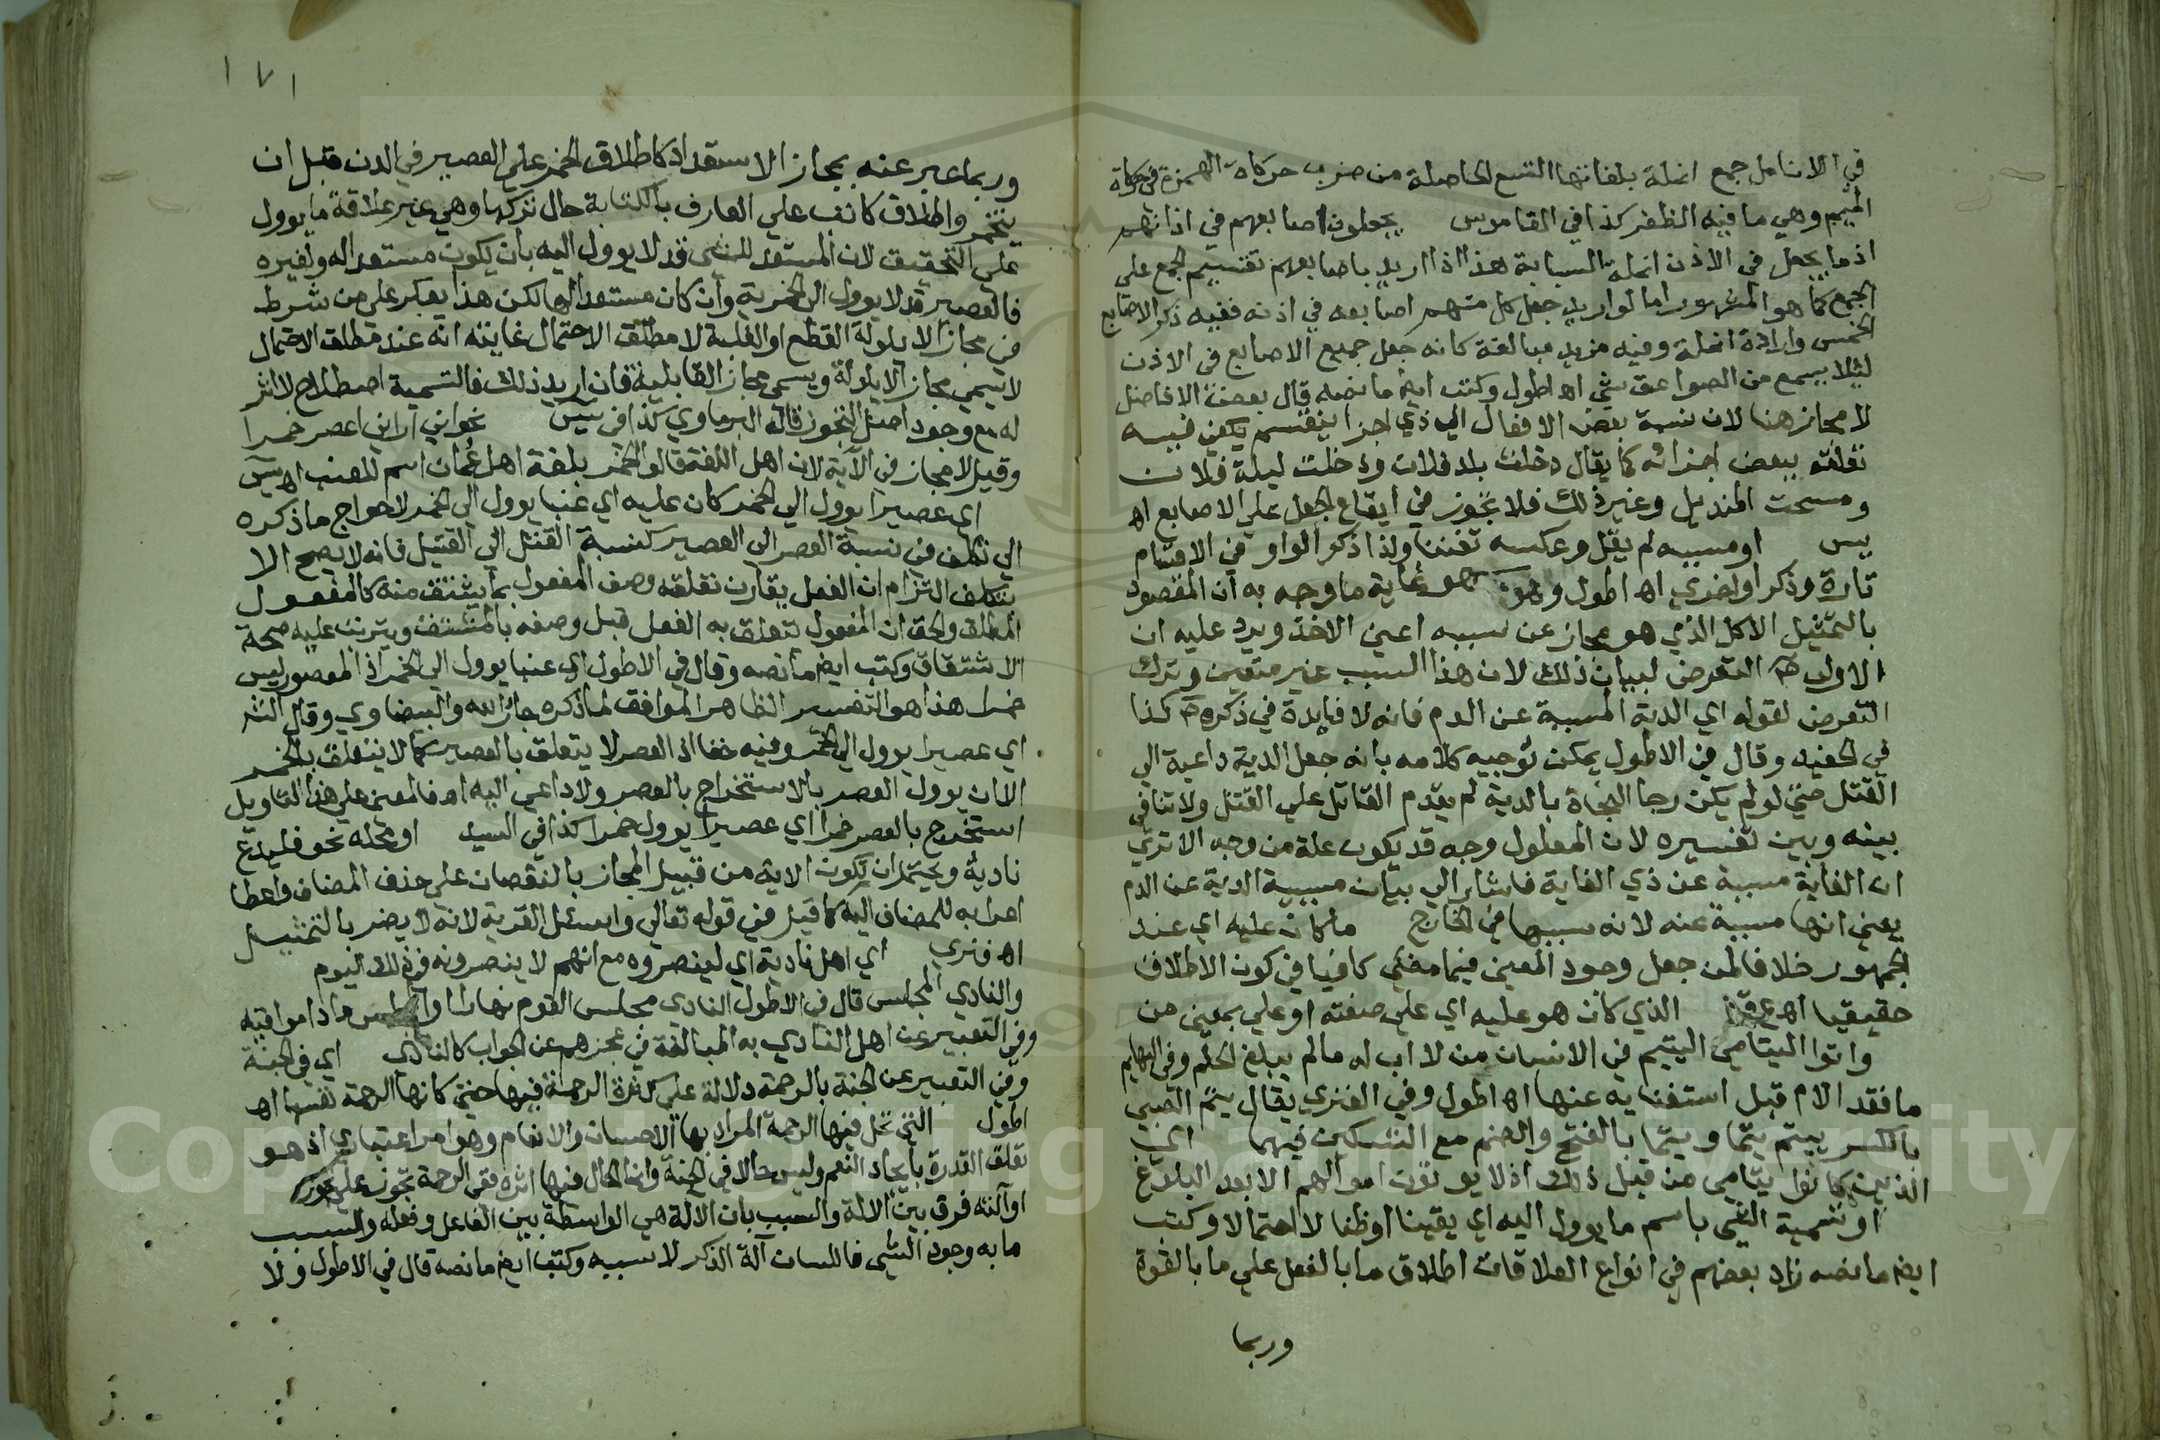 في الانامل جمع انملة بلغاتها التسع الحاصلة من ضرب حركات الهمزة في حركات
الميم وهي ما فيه الظفر كذا في القاموس يجعلون اصابعهم في اذانهم
اذ ما يجعل في الاذن انملة السبابة هذا اذا اريد باصابعهم تقسيم الجمع على
الجمع كما هو المشهور اما لو اريد جعل كل منهم اصابعه في اذنه ففيه ذكر الاصابع
الخمس وارادة انملة وفيه مزيد مبالغة كانه جعل جميع الاصابع في الاذن
لئلا يسمع من الصواعق شي اه اطول وكتب ايض ما نصه قال بعض الافاضل
لا مجاز هنا لان نسبة بعض الافعال الي ذي اجزا ينقسم يكفي فيه
تعلقه ببعض اجزائه كما يقال دخلت بلد فلان ودخلت ليلة فلان
ومسحت المنديل وغير ذلك فلا تجوز في ايقاع الجعل علي الاصابع اه
يس او مسببه لم يقل وعكسه تفننا ولذا ذكر الواو في الاقسام
تارة وذكر او اخري اه اطول هو غاية ما وجه به ان المقصود
بالتمثيل الاكل الذي هو مجاز عن سببه اعني الاخذ ويرد عليه ان
الاولي ح التعرض لبيان ذلك لان هذا السبب غير متعين وترك
التعرض لقوله اي الدية المسببة عن الدم فانه لا فايدة في ذكره ح كذا
في الحفيد وقال في الاطول يمكن توجيه كلامه بانه جعل الدية داعية الي
القتل حتى لو لم يكن رجا النجاة بالدية لم يقدم القاتل علي القتل ولا تنافي
بينه وبين تفسيره لان المعلول وجه قد يكون علة من وجه الا تري
ان الغاية مسببة عن ذي الغاية فاشار الي بيان مسببية الدية عن الدم
يعني انها مسببة عنه لانه سببها في الخارج ما كان عليه اي عند
الجمهور خلافا لمن جعل وجود المعني فيما مضي كافيا في كون الاطلاق
حقيقيا اه الذي كان هو عليه اي علي صفته او علي بمعني من
واتوا اليتامي اليتيم في الانسان من لا اب له ما لم يبلغ الحلم وفي البهايم
ما فقد الام قبل استغنايه عنها اه اطول وفي الفنري يقال يتم الصبي
بالكسر ييتم يتما ويتما بالفتح والضم مع التسكين فيهما اي
الذين كانوا يتامي من قبل ذلك اذ لا يوتون اموالهم الا بعد البلوغ
او تسمية الشي باسم ما يوول اليه اي يقينا او ظنا لا احتمالا وكتب
ايض ما نصه زاد بعضهم في انواع العلاقات اطلاق ما بالفعل علي ما بالقوة
وربما
١٧١
وربما عبر عنه بمجاز الاستعداد كاطلاق الخمر علي العصير في الدن قبل ان
يتخمر واطلاق كاتب علي العارف بالكتابة حال تركها وهي غير علاقة ما يوول
علي التحقيق لان المستعد للشي قد لا يوول اليه بان يكون مستعدا له ولغيره
فالعصير قد لا يوول الي الخمرية وان كان مستعدا لها لكن هذا يعكر علي من شرط
في مجاز الايلولة القطع او الغلبة لا مطلق الاحتمال غايته انه عند مطلق الاحتمال
لا يسمي مجاز الايلولة ويسمي مجاز القابلية فان اريد ذلك فالتسمية اصطلاح لا اثر
له مع وجود اصل التجوز قاله البرماوي كذا في يس نحو اني اراني اعصر خمرا
وقيل لا مجاز في الآية لان اهل اللغة قالوا الخمر بلغة اهل عمان اسم للعنب اه يس
اي عصيرا يوول الي الخمر كان عليه اي عنبا يوول الي الخمر لاحواج ما ذكره
الي تكلف في نسبة العصر الي العصير كنسبة القتل الي القتيل فانه لا يصح الا
بتكلف التزام ان الفعل يقارن تعلقه وصف المفعول بما يشتق منه كالمفعول
المطلق والحق ان المفعول تعلق به الفعل قبل وصفه بالمشتق ويترتب عليه صحة
الاشتقاق وكتب ايض ما نصه وقال في الاطول اي عنبا يوول الي الخمر اذ المعصور ليس
خمرا هذا هو التفسير الظاهر الموافق لما ذكره جار الله والبيضاوي وقال الش
اي عصيرا يوول الي الخمر وفيه خفا اذ العصر لا يتعلق بالعصير كما لا يتعلق بالخمر
الا ان يوول العصر بالاستخراج بالعصر ولا داعي اليه اه فالمعني علي هذا التاويل
استخرج بالعصر خمرا اي عصيرا يوول خمرا كذا في السيد او محله نحو فليدع
ناديه ويحتمل ان تكون الاية من قبيل المجاز بالنقصان علي حذف المضاف واعطا
اعرابه للمضاف اليه كما قيل في قوله تعالي واسئل القرية لانه لا يضر بالتمثيل
اه فنري اي اهل ناديه اي لينصروه مع انهم لا ينصرونه في ذلك اليوم
والنادي المجلس قال في الاطول النادي مجلس القوم نهارا او المجلس ما داموا فيه
وفي التعبير عن اهل النادي به المبالغة في عجزهم عن الجواب كالنادي اي في الجنة
وفي التعبير عن الجنة بالرحمة دلالة علي كثرة الرحمة فيها حتي كانها الرحمة نفسها اه
اطول التي تحل فيها الرحمة المراد بها الاحسان والانعام وهو امر اعتباري اذ هو
تعلق القدرة بايجاد النعم وليس حالا في الجنة وانما الحال فيها اثره ففي الرحمة تجوز علي تجوز
او آلته فرق بين الالة والسبب بان الالة هي الواسطة بين الفاعل وفعله والسبب
ما به وجود الشي فاللسان آلة الذكر لا سببه وكتب ايض ما نصه قال في الاطول